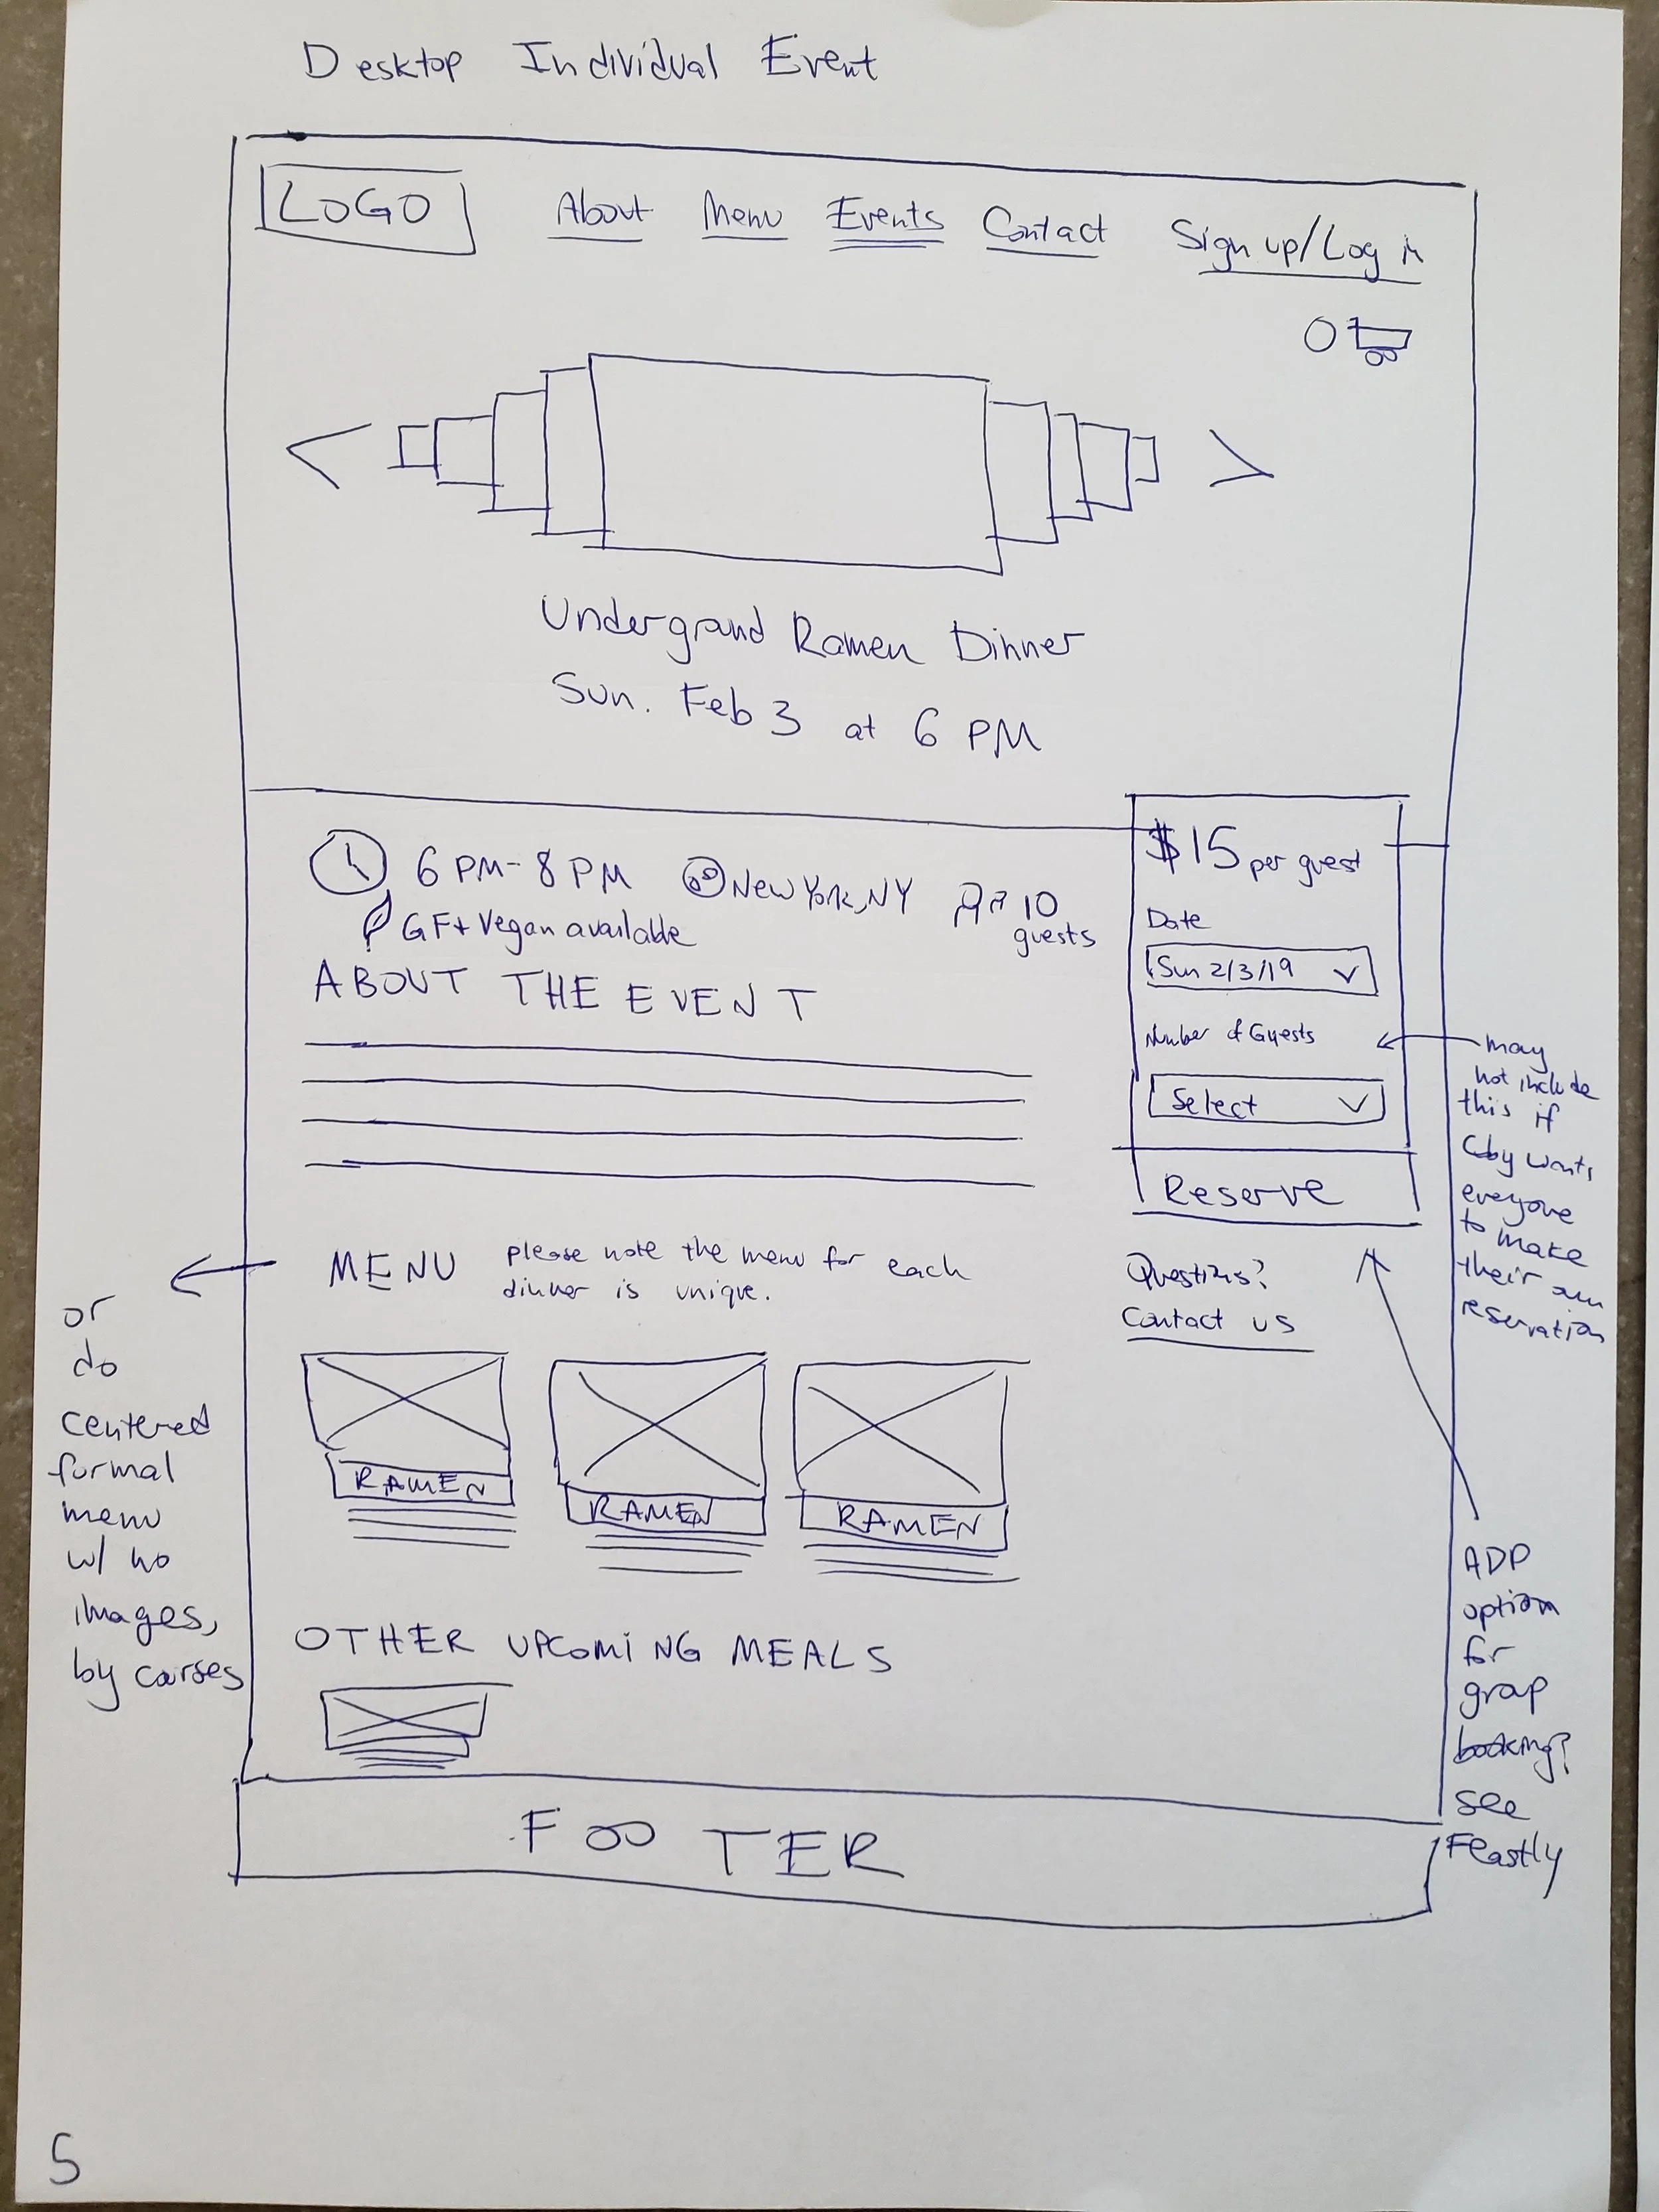 Desktop Individual Event
LOGO About Menu Events Contact Sign up/Log in
0
< >
Underground Ramen Dinner
Sun. Feb 3 at 6 PM
6 PM-8 PM New York, NY 10
guests
GF+ Vegan available
ABOUT THE EVENT
$15 per guest
Date
Sun 2/3/19
Number of Guests
Select
Reserve
Questions?
Contact us
may
not include
this if
Coby wants
everyone
to make
their own
reservation
MENU please note the menu for each
dinner is unique.
or
do
centered
formal
menu
w/ no
images,
by courses
RAMEN RAMEN RAMEN
OTHER UPCOMING MEALS
ADP
option
for
group
booking?
see
Feastly
FOOTER
5